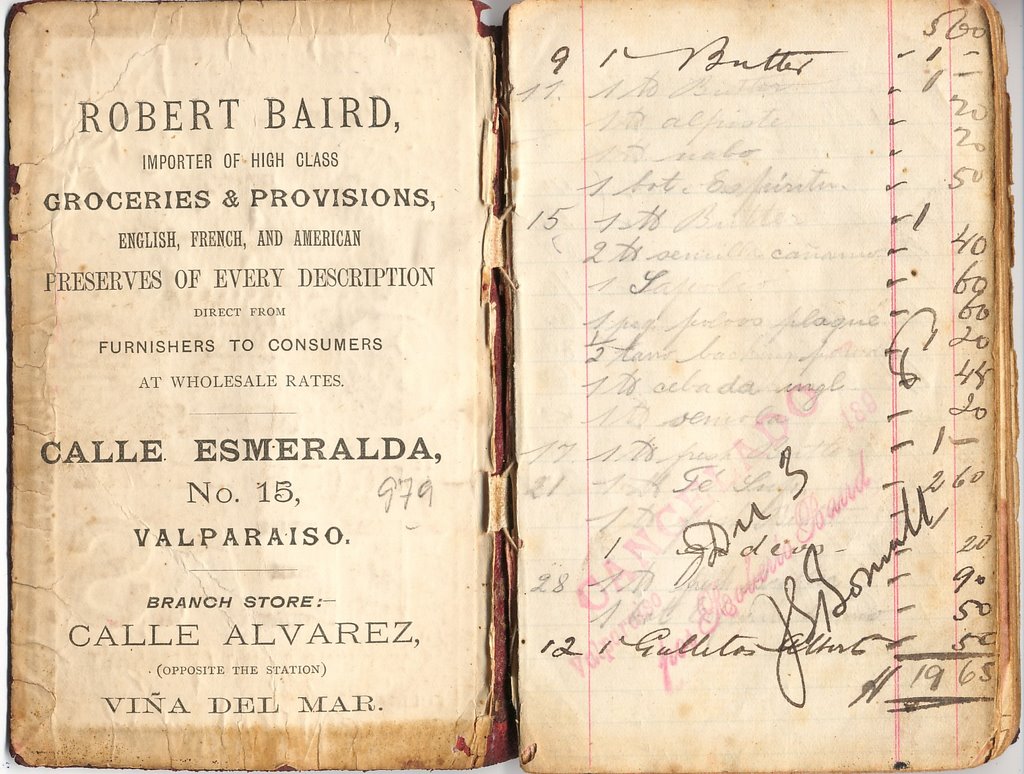 ROBERT BAIRD,
IMPORTER OF HIGH CLASS
GROCERIES & PROVISIONS,
ENGLISH, FRENCH, AND AMERICAN
PRESERVES OF EVERY DESCRIPTION
DIRECT FROM
FURNISHERS TO CONSUMERS
AT WHOLESALE RATES.
CALLE ESMERALDA,
No. 15,
979
VALPARAISO.
BRANCH STORE:—
CALLE ALVAREZ,
(OPPOSITE THE STATION)
VIÑA DEL MAR.
5 60
9 1 " Butter " 1 –
11 1 lb Butter " 1 –
1 lb alpiste " 20
1 lb nabo " 20
1 bot. Espíritu " 50
15 1 lb Butter " 1
2 lb semilla cañamo " 40
1 60
1 paq polvos plaqué 60
2 20
1 lb cebada ingl. 45
1 lb 20
17 1 lb fresh Butter " 1 –
21 1 lb Té " 2 60
1 20
28 1 lb 90
1 bot 50
12 1 " Galletas Albert " 50
19 65
CANCELADO
Valparaiso 189
Baird